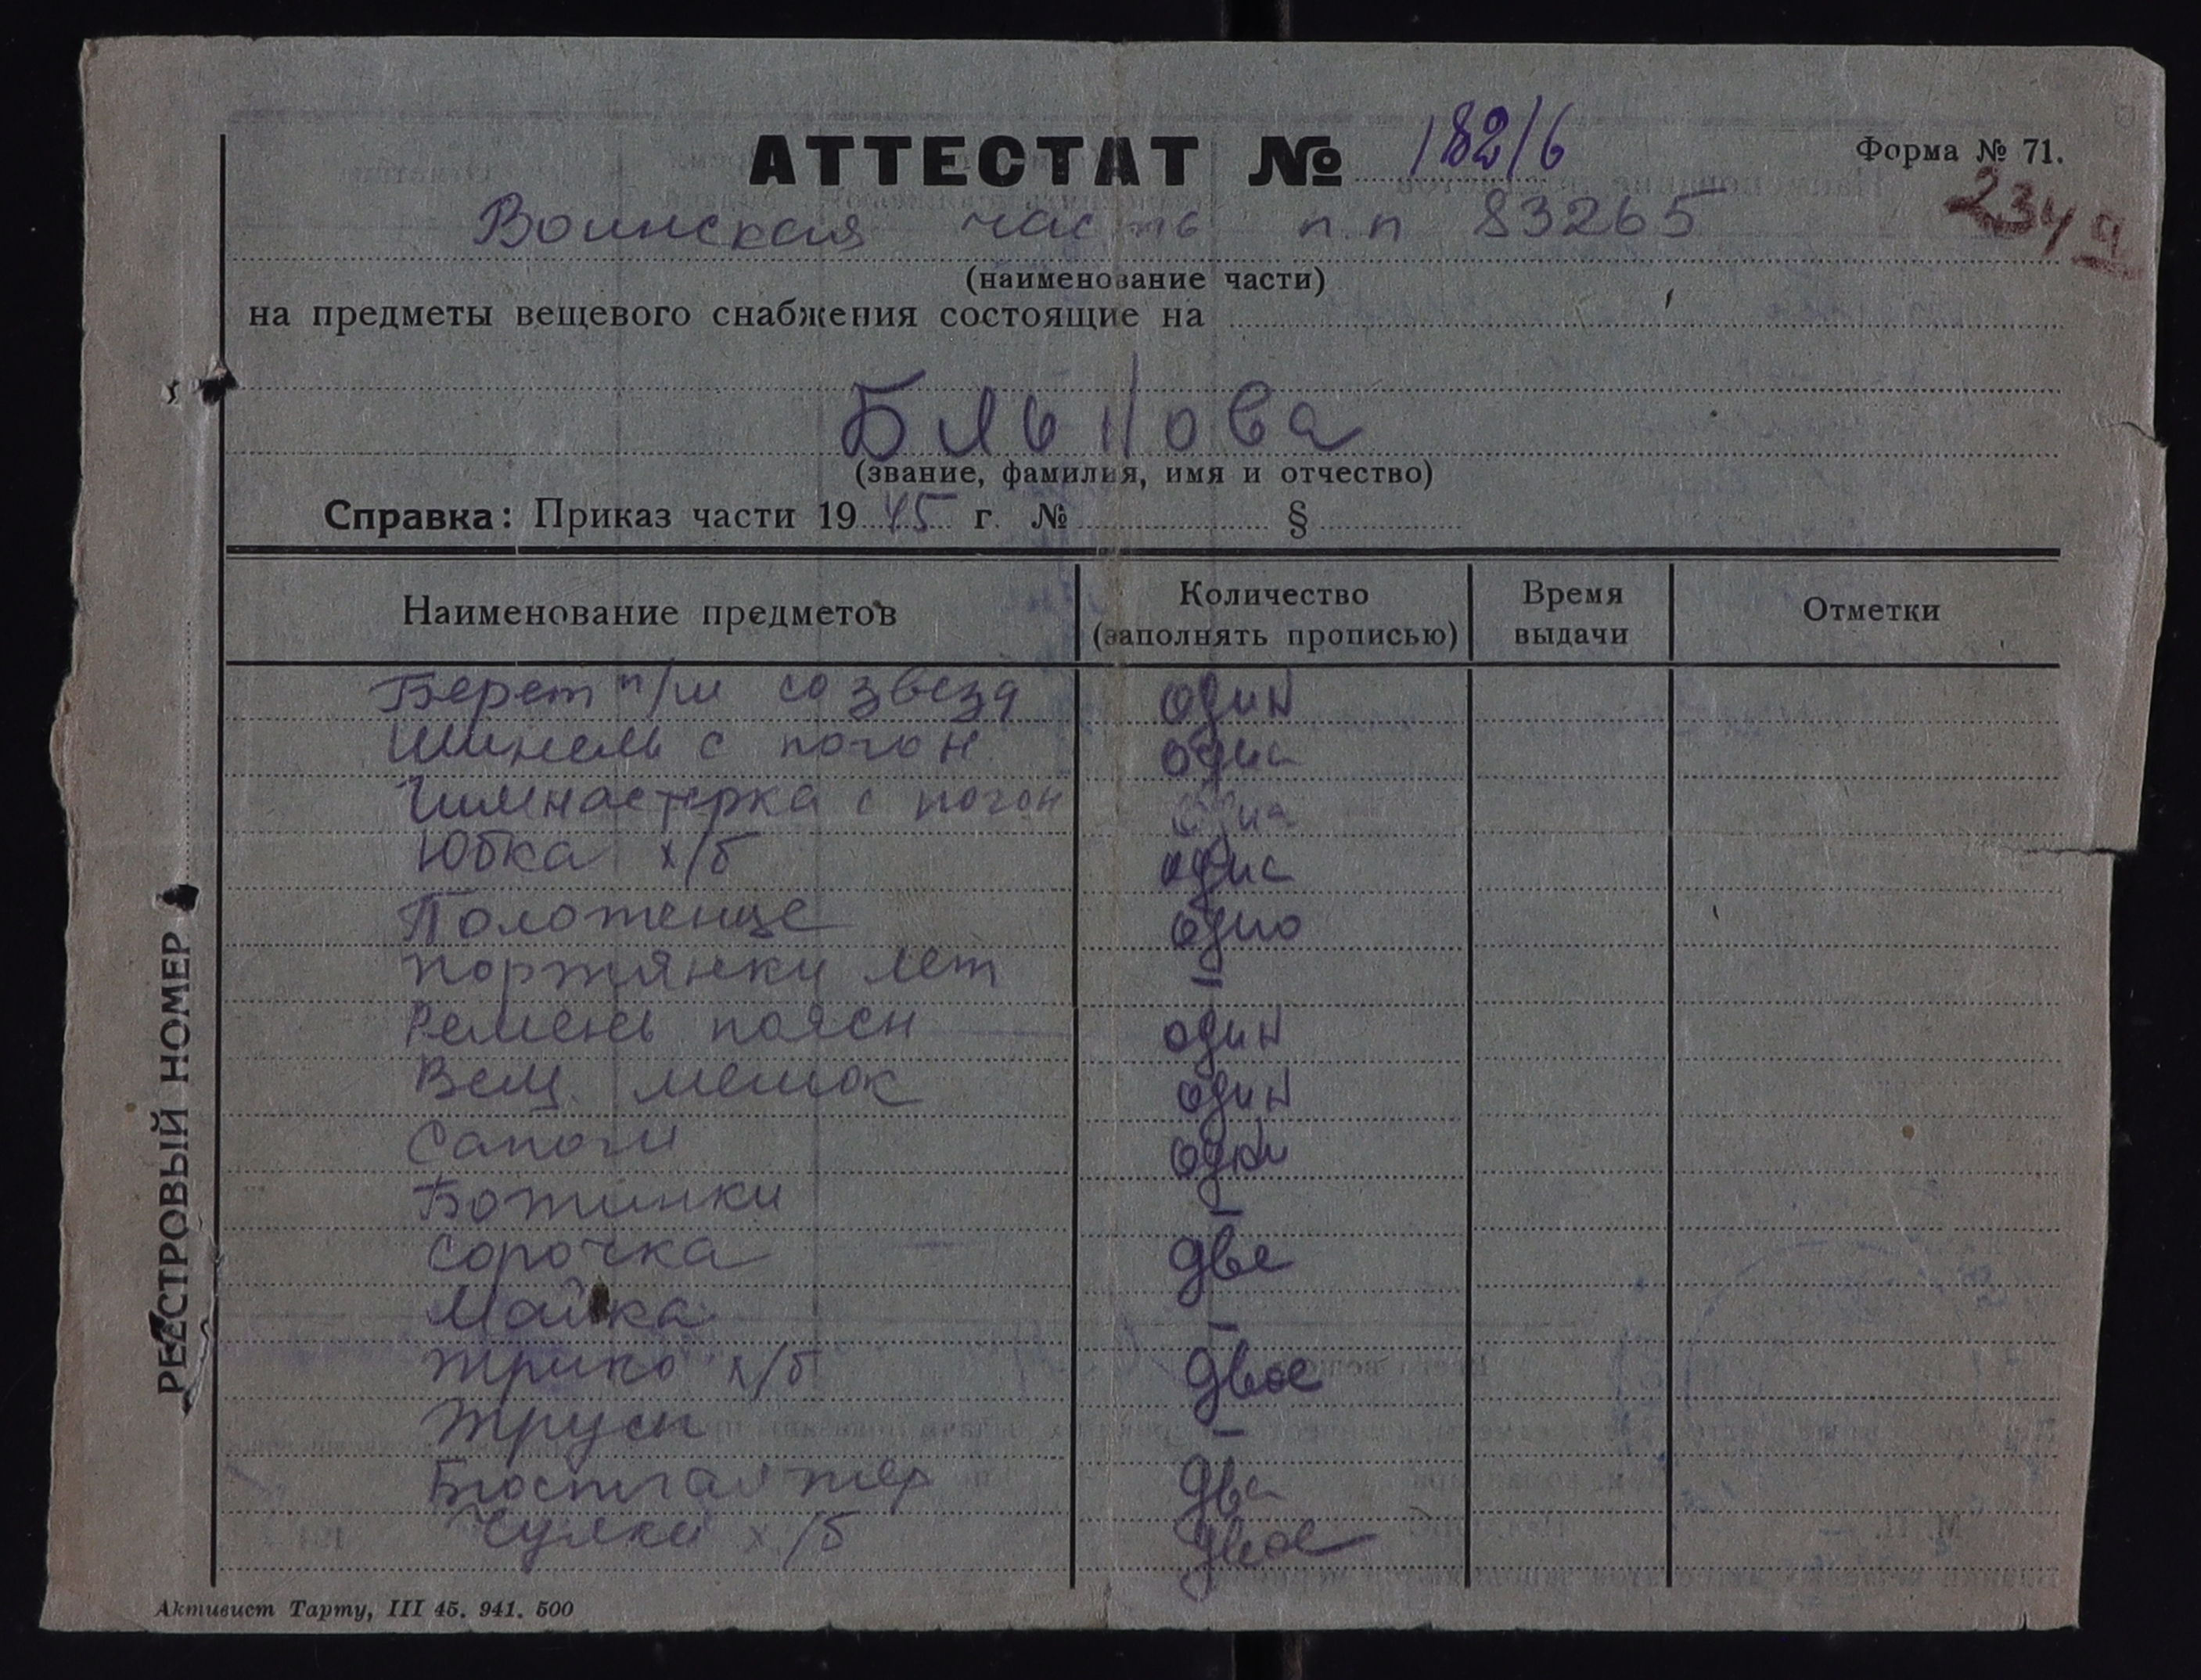 АТТЕСТАТ № 182/6
Форма № 71.
Воинская часть п.п 83265
234
(наименование части)
на предметы вещевого снабжения состоящие на
Бльнова
(звание, фамилия, имя и отчество)
Справка: Приказ части 19 45 г. № §
Наименование предметов Количество (заполнять прописью) Время выдачи Отметки
Берет п/ш со звезд один
Шинель с погон одна
Гимнастерка с погон одна
Юбка х/б одна
Полотенце одно
Портянки лет –
Ремень поясн один
Вещ. мешок один
Сапоги одни
Ботинки –
Сорочка две
Майка –
Трико х/б двое
Трусы –
Бюстгалтер два
Чулки х/б двое
РЕЕСТРОВЫЙ НОМЕР
Активист Тарту, III 45. 941. 500